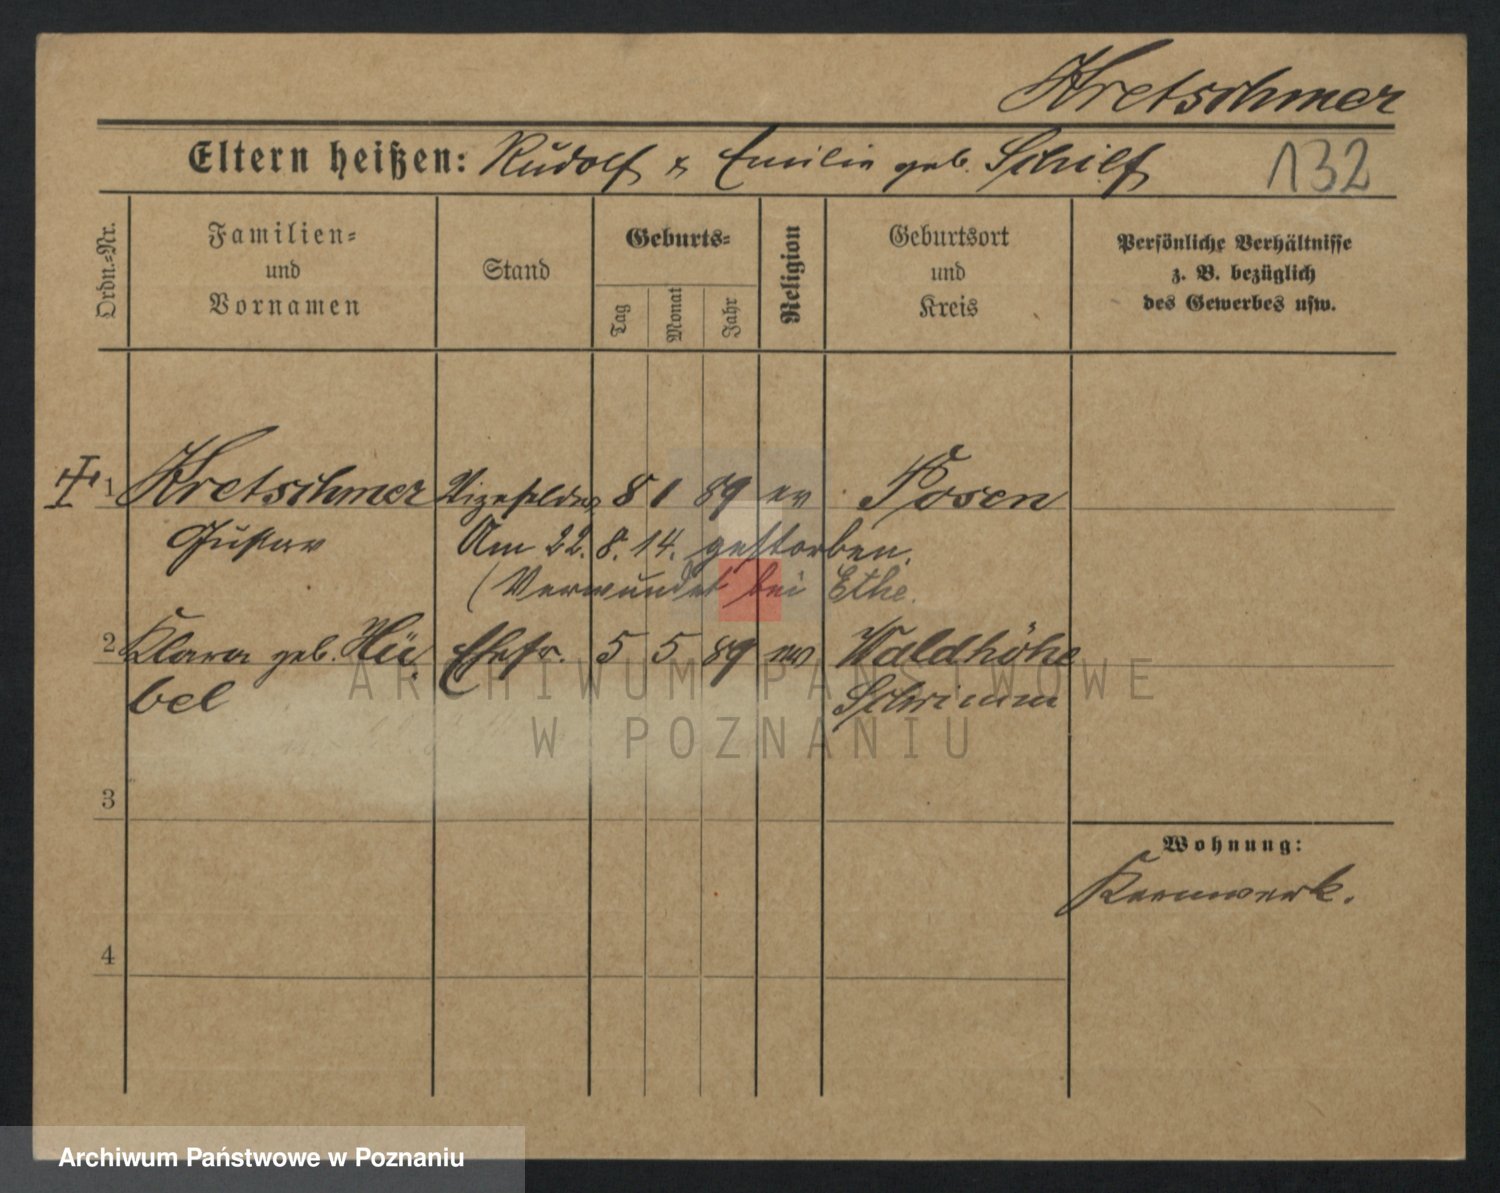 Kretschmer
Eltern heißen: Rudolf & Emilie geb. Schilf 132
Ordn.-Nr.
Familien-
und
Vornamen
Stand
Geburts-
Tag
Monat
Jahr
Religion
Geburtsort
und
Kreis
Persönliche Verhältnisse
z. B. bezüglich
des Gewerbes usw.
1 Kretschmer Vizefeldw 8 1 89 ev Posen
Gustav Am 22. 8. 14. gestorben.
(Verwundet bei Ethe.
2 Klara geb. Hü Ehefr. 5 5 89 ev Waldhöhe
bel Schrimm
3
Wohnung:
Kernwerk.
4
ARCHIWUM PAŃSTWOWE
W POZNANIU
Archiwum Państwowe w Poznaniu